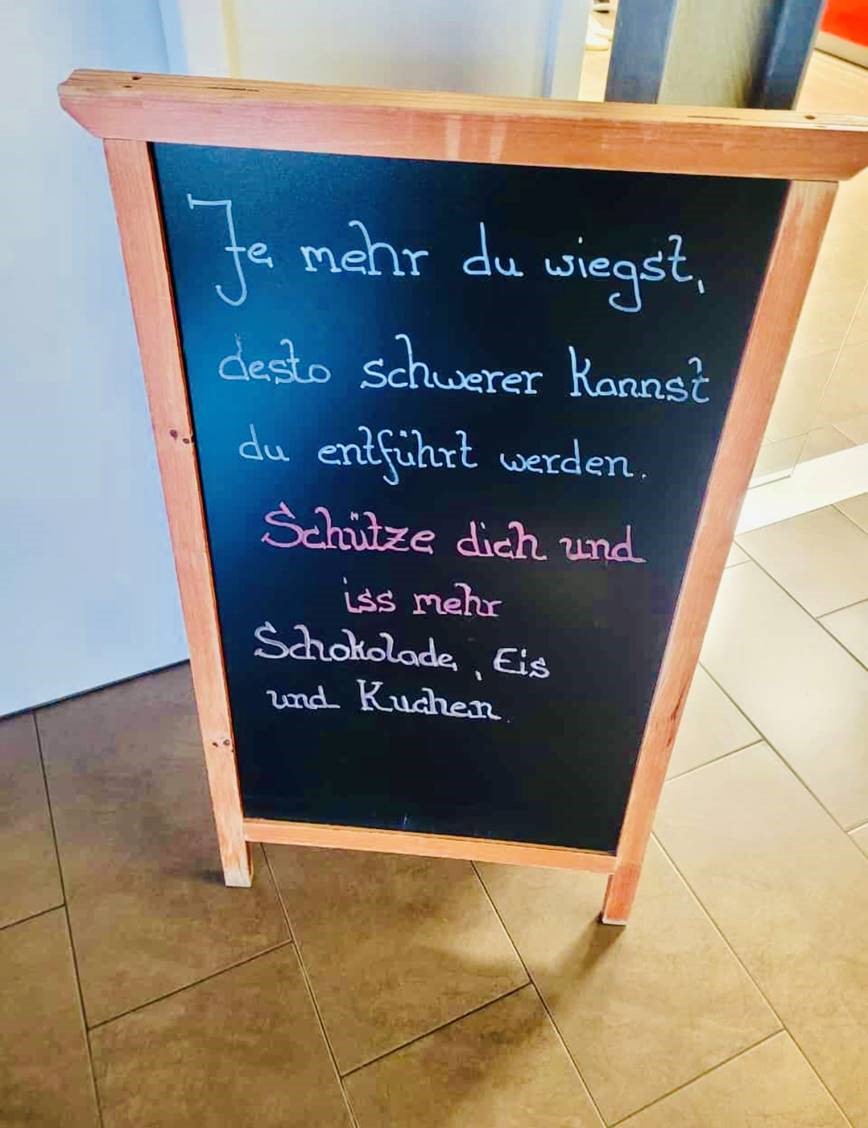 Je mehr du wiegst,
desto schwerer kannst
du entführt werden.
Schütze dich und
iss mehr
Schokolade, Eis
und Kuchen.